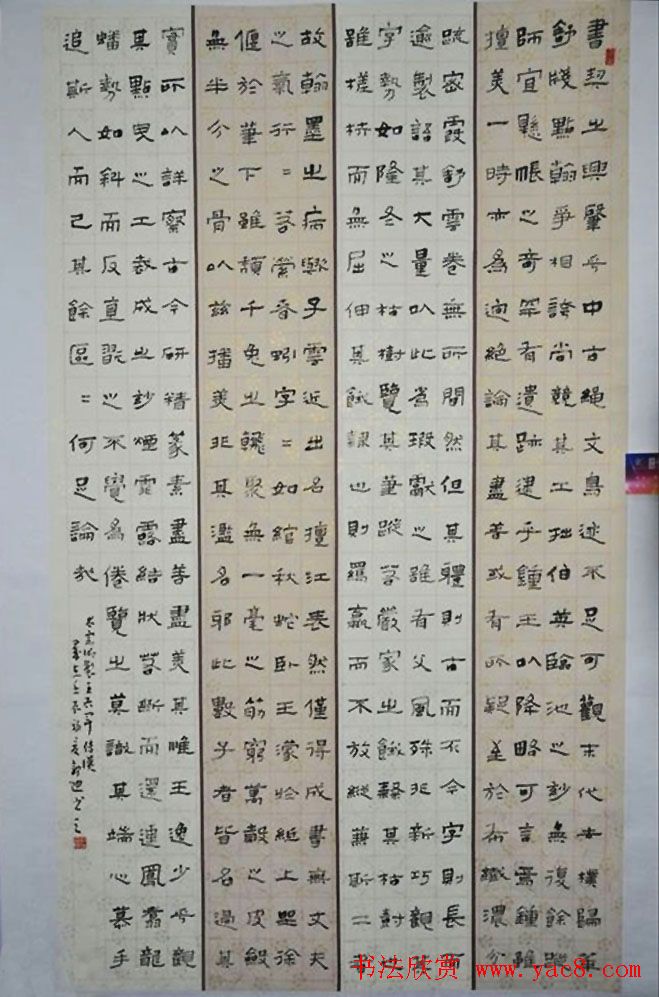 書契之興肇乎中古繩文鳥迹不足可觀末代去樸歸華
舒牋點翰爭相誇尚競其工拙伯英臨池之妙無復餘蹤
師宜懸帳之奇罕有遺跡逮乎鍾王以降略可言焉鍾雖
擅美一時亦為迥絕論其盡善或有所疑至於布纖濃分
疏密霞舒雲卷無所間然但其體則古而不今字則長而
逾製語其大量以此為瑕獻之雖有父風殊非新巧觀其
字勢如隆冬之枯樹覽其筆蹤若嚴家之餓隸其枯樹也
雖槎枿而無屈伸其餓隸也則羈羸而不放縱兼斯二者
故翰墨之病歟子雲近出名擅江表然僅得成書無丈夫
之氣行〻若縈春蚓字〻如綰秋蛇臥王濛於紙上坐徐
偃於筆下雖禿千兔之翰聚無一毫之筋窮萬穀之皮斂
無半分之骨以茲播美非其濫名耶此數子者皆名過其
實所以詳察古今研精篆素盡善盡美其唯王逸少乎觀
其點曳之工裁成之妙煙霏露結狀若斷而還連鳳翥龍
蟠勢如斜而反直翫之不覺為倦覽之莫識其端心慕手
追斯人而已其餘區〻何足論哉
书法欣赏 www.yac8.com